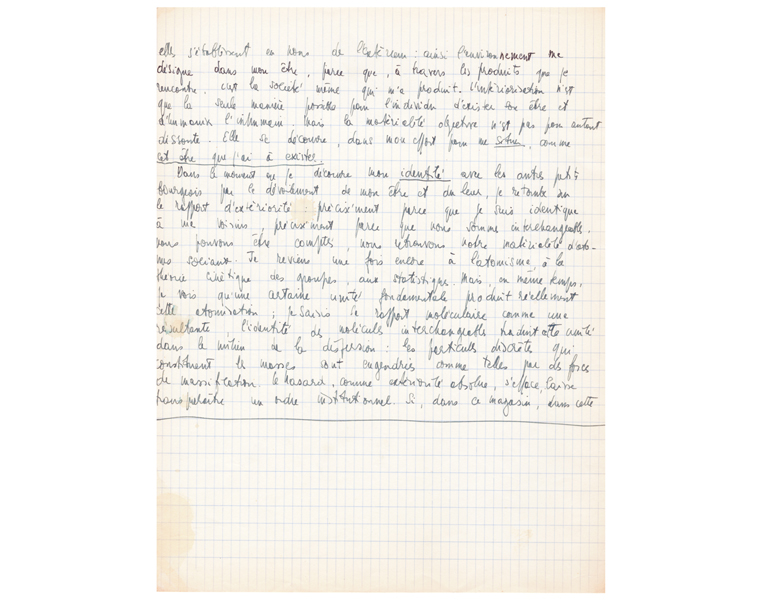 elles s'établissent en nous de l'extérieur : ainsi l'environnement me
désigne dans mon être, parce que, à travers les produits que je
rencontre, c'est la société même qui m'a produit. L'intériorisation n'est
que la seule manière possible pour l'individu d'exister son être et
d'humaniser l'inhumain. Mais la matérialité objective n'est pas pour autant
dissoute. Elle se découvre, dans mon effort pour me situer, comme
cet être que j'ai à exister.
Dans le moment où je découvre mon identité avec les autres petits
bourgeois par le dévoilement de mon être et du leur, je retombe sur
le rapport d'extériorité : précisément parce que je suis identique
à mes voisins, précisément parce que nous sommes interchangeables,
nous pouvons être comptés, nous retrouvons notre matérialité d'ato-
mes sociaux. Je reviens une fois encore à l'atomisme, à la
théorie cinétique des groupes, aux statistiques. Mais, en même temps,
je vois qu'une certaine unité fondamentale produit réellement
cette atomisation ; je saisis le rapport moléculaire comme une
résultante, l'identité des molécules interchangeables traduit cette unité
dans le milieu de la dispersion : les particules discrètes qui
constituent les masses sont engendrées comme telles par des forces
de massification. Le hasard, comme extériorité absolue, s'efface, laisse
transparaître un ordre institutionnel. Si, dans ce magasin, dans cette